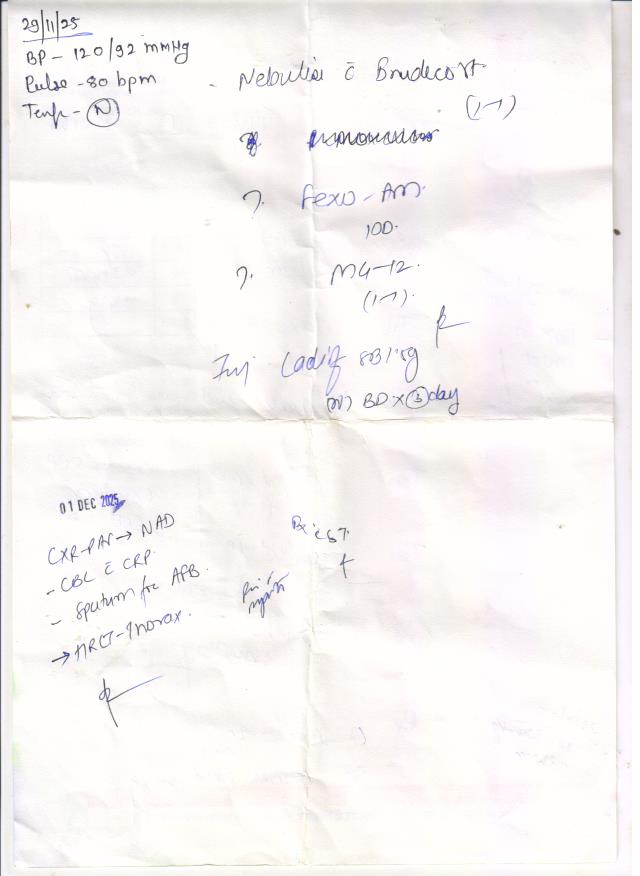 29/11/25
BP - 120/92 mmHg
Pulse - 80 bpm
Temp - N
- Nebulise c̄ Budecort
(1-1)
Fexo - AM
10D.
MG-12.
(1-1).
Inj
IV BD x 3 day
01 DEC 2025
CXR-PAV → NAD
- CBC c̄ CRP.
- Sputum for AFB.
→ HRCT-Thorax.